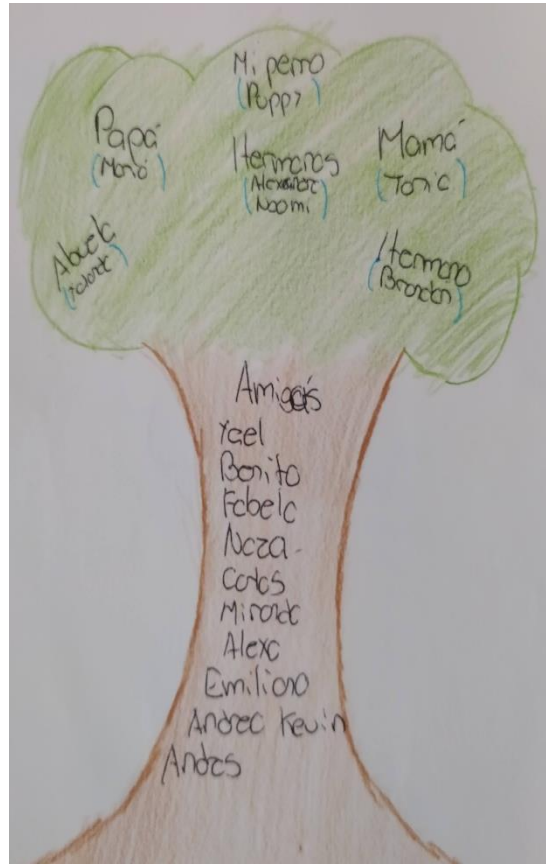 Mi perro
(Puppy)
Papá
(Mario)
Hermanos
(Alexander
Naomi)
Mamá
(Tania)
Abuela
Hermano
(Brandon)
Amigos
Yael
Benito
Fabela
Noza
Carlos
Miranda
Alexa
Emiliano
Andrea Kevin
Andres